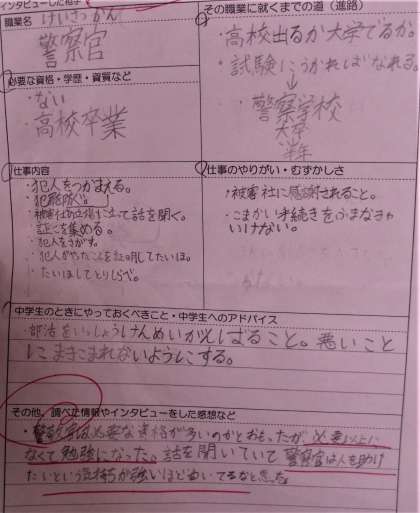 インタビューした相手
職業名 けいさつかん
警察官
必要な資格・学歴・資質など
・ない
・高校卒業
その職業に就くまでの道（進路）
・高校出るか大学でるか。
・試験にうかればなれる。
↓
・警察学校
大卒
半年
仕事内容
・犯人をつかまえる。
・犯罪防ぐ
・被害者の立場に立って話を聞く。
・証こを集める。
・犯人をさがす。
・犯人がやったことを証明してたいほ。
・たいほしてとりしらべ。
仕事のやりがい・むずかしさ
・被害社に感謝されること。
・こまかい手続きをふまなきゃ
いけない。
中学生のときにやっておくべきこと・中学生へのアドバイス
・部活をいっしょうけんめいがんばること。悪いこと
にまきこまれないようにする。
その他、調べた情報やインタビューをした感想など
・警察官は必要な資格が多いのかとおもったが、必要以上に
なくて勉強になった。話を聞いていて警察官は人を助け
たいという気持ちが強いほど向いてるなと思った。